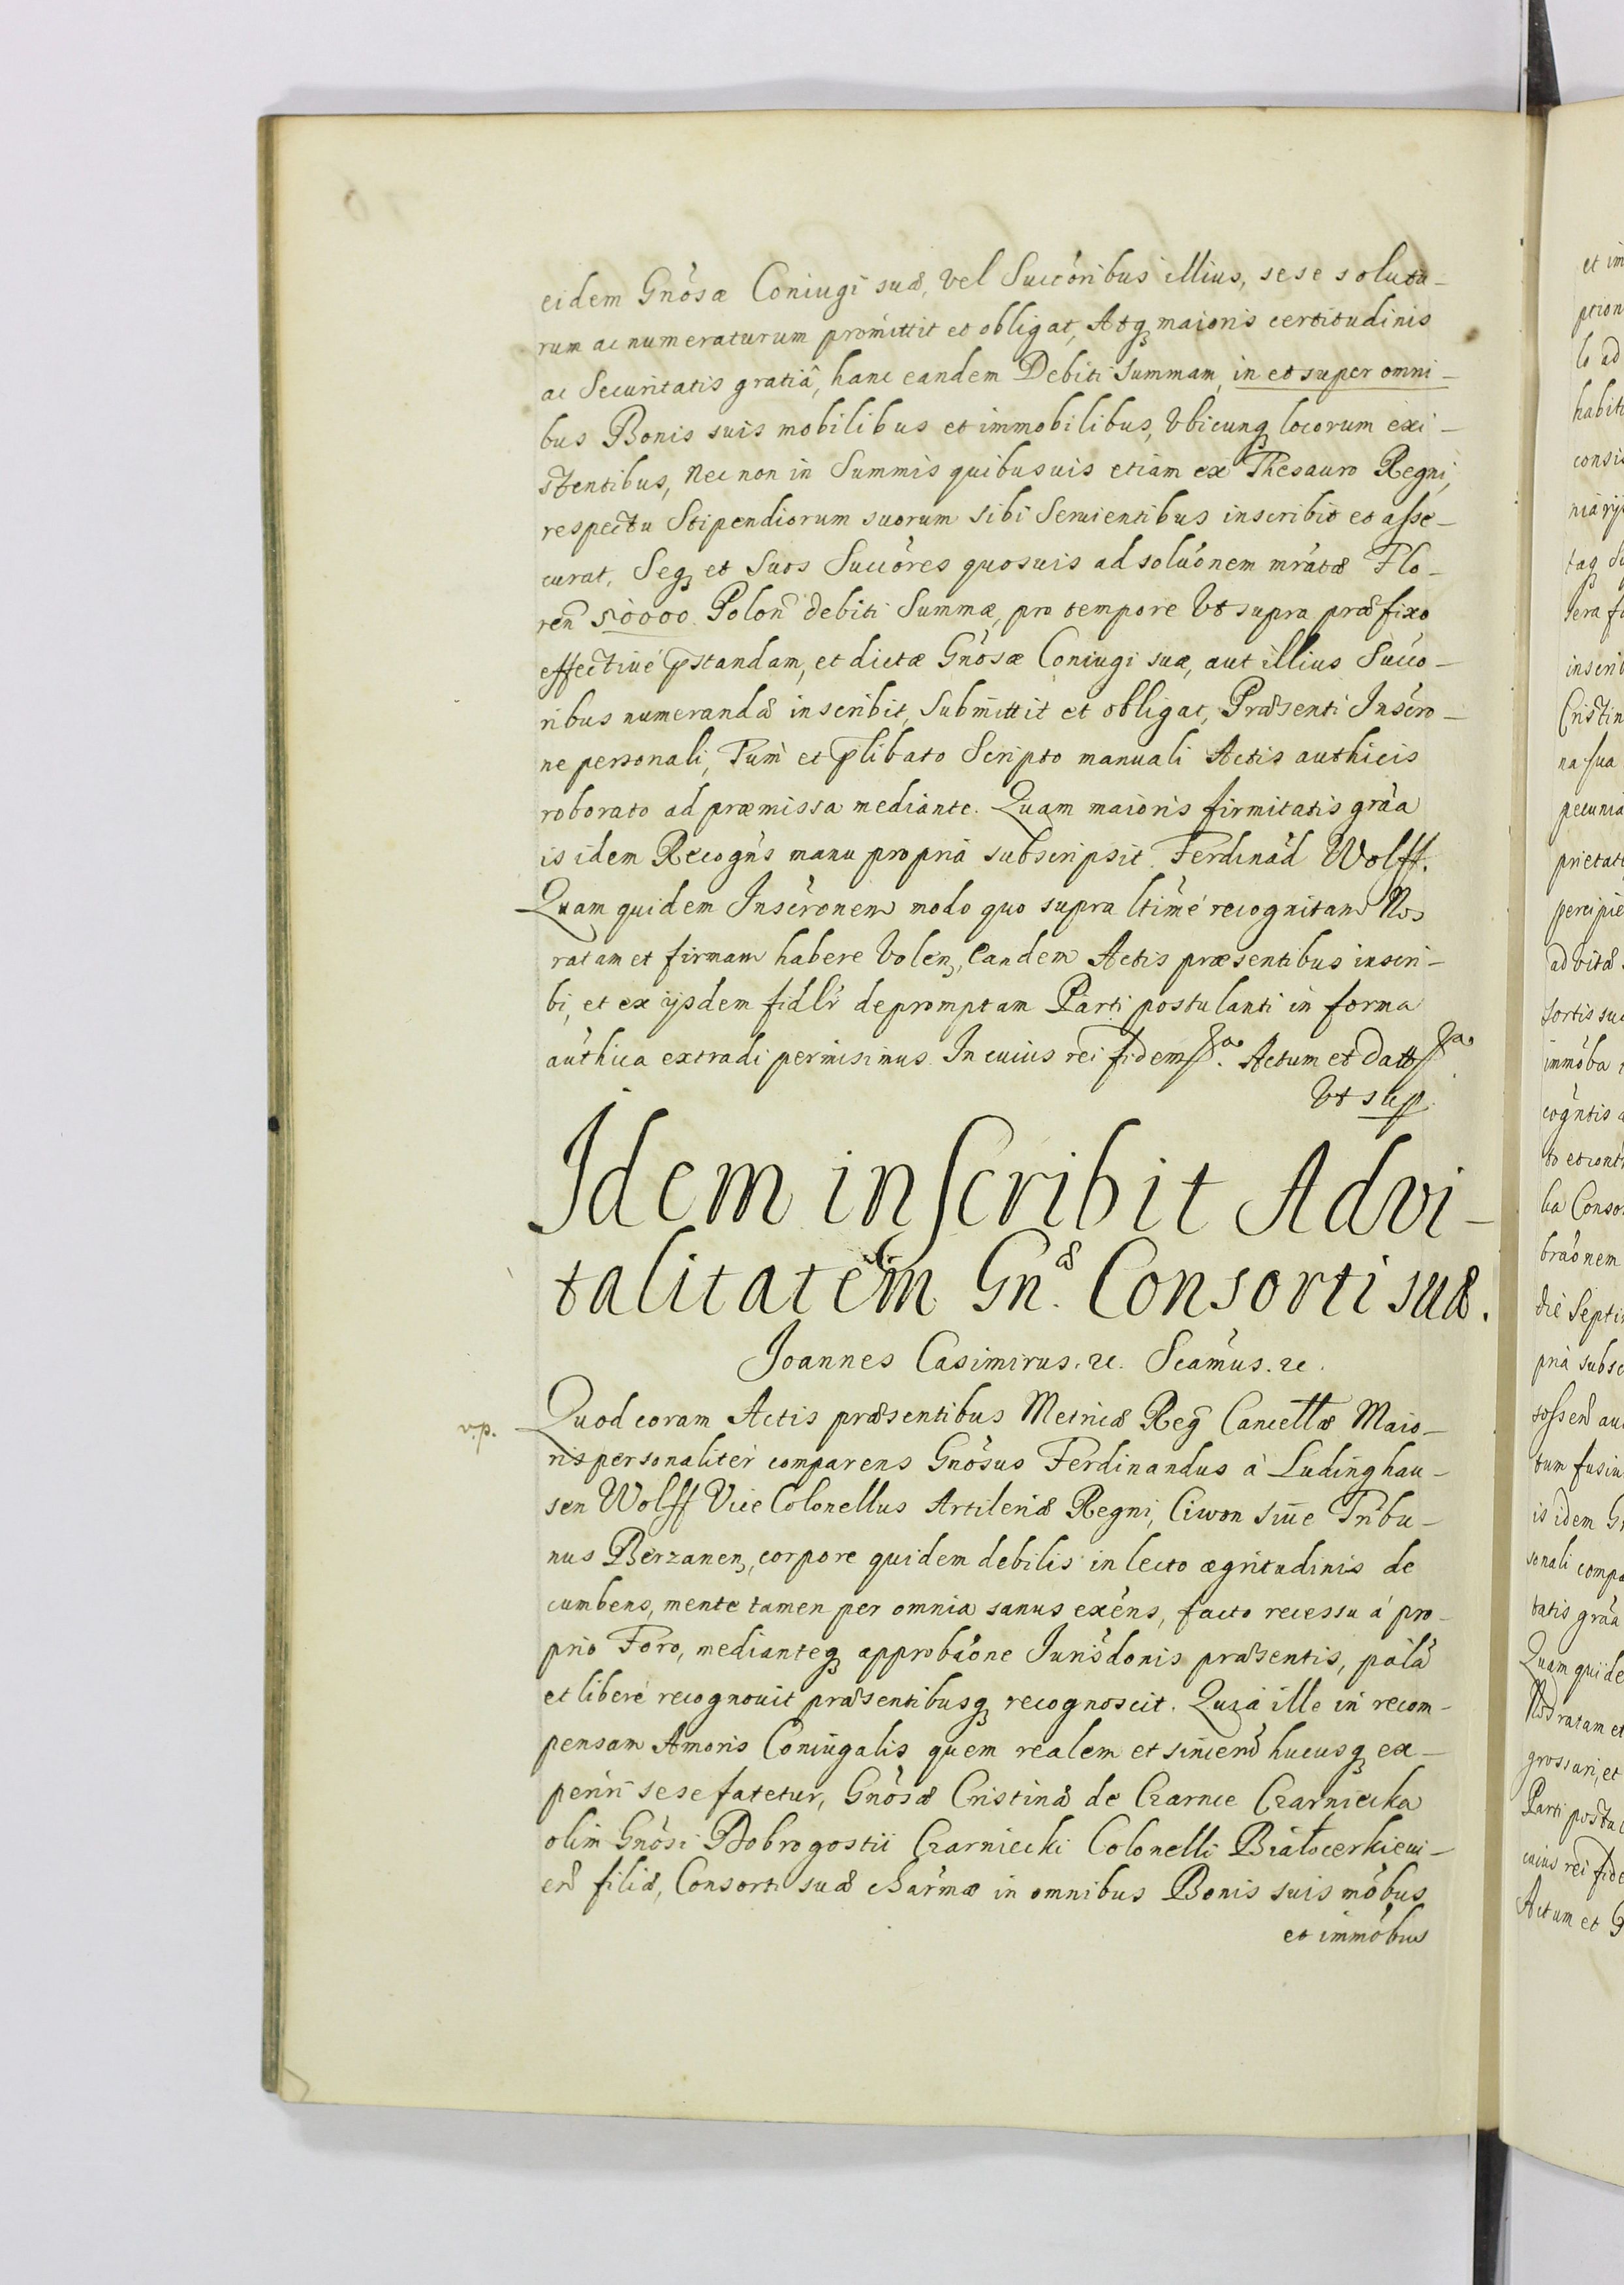 eidem Gnösæ Coniugi suæ, Vel Succöribus illius, sese solutu-
rum ac numeraturum promittit et obligat, Atq₃ maioris certitudinis
ac Securitatis gratiâ, hanc eandem Debiti Summam, in et super omni-
bus Bonis suis mobilibus et immobilibus, Vbicunq₃ locorum exi-
stentibus, Nec non in Summis quibusuis etiam ex Thesauro Regni,
respectu Stipendiorum suorum sibi Seruientibus inscribit et asse-
curat, Seq₃ et Suos Succöres quosuis ad solüonem mrätæ Flo-
reñ 50000 Poloñ debiti Summæ, pro tempore Vt supra præfixo
effectiué p̃standam, et dictæ Gnösæ Coniugi suæ, aut illius Succo-
ribus numerandã inscribit, Submittit et obligat, Præsenti Inscro-
ne personali, Tum et p̃libato Scripto manuali Actis authicis
roborato ad præmissa mediante. Quam maioris firmitatis gräa
is idem Recogñs manu propriâ subscripsit Ferdinãd Wolff.
Quam quidem Inscrönem modo quo supra ltimé recognitam Nos
ratam et firmam habere Volen₃, Eandem Actis præsentibus inscri-
bi, et ex ijsdem fidlr depromptam Parti postulanti in forma
authica extradi permisimus. In cuius rei fidem ꝭᵃ. Actum et Datt ꝭᵃ
Vt sup.
Idem inscribit Advi-
talitatem Gn.æ Consorti suæ.
Joannes Casimirus. ꝛc. Scamus. ꝛc.
v.p.
Quod coram Actis præsentibus Metricæ Reg̃ Cancellæ Maio-
ris personalitér comparens Gnösus Ferdinandus à Ludinghau-
sen Wolff Vice Colonellus Artileriæ Regni, Ciwon siue Tribu-
nus Berzanen₃, corpore quidem debilis in lecto ægritudinis de
cumbens, mente tamen per omnia sanus exéns, facto recessu á pro-
prio Foro, mediante q₃ approbäone Jurisdonis præsentis, palã
et liberé recognouit præsentibusq₃ recognoscit. Quiá ille in recom-
pensam Amoris Coniugalis quem realem et sincerũ hucusq₃ ex-
periri sese fatetur, Gnösæ Cristinæ de Czarnce Czarniecka
olim Gnösi Dobrogostii Czarniecki Colonelli Białocerkieui-
eñ filiæ, Consorti suæ charmæ in omnibus Bonis suis möbus
et immöbus